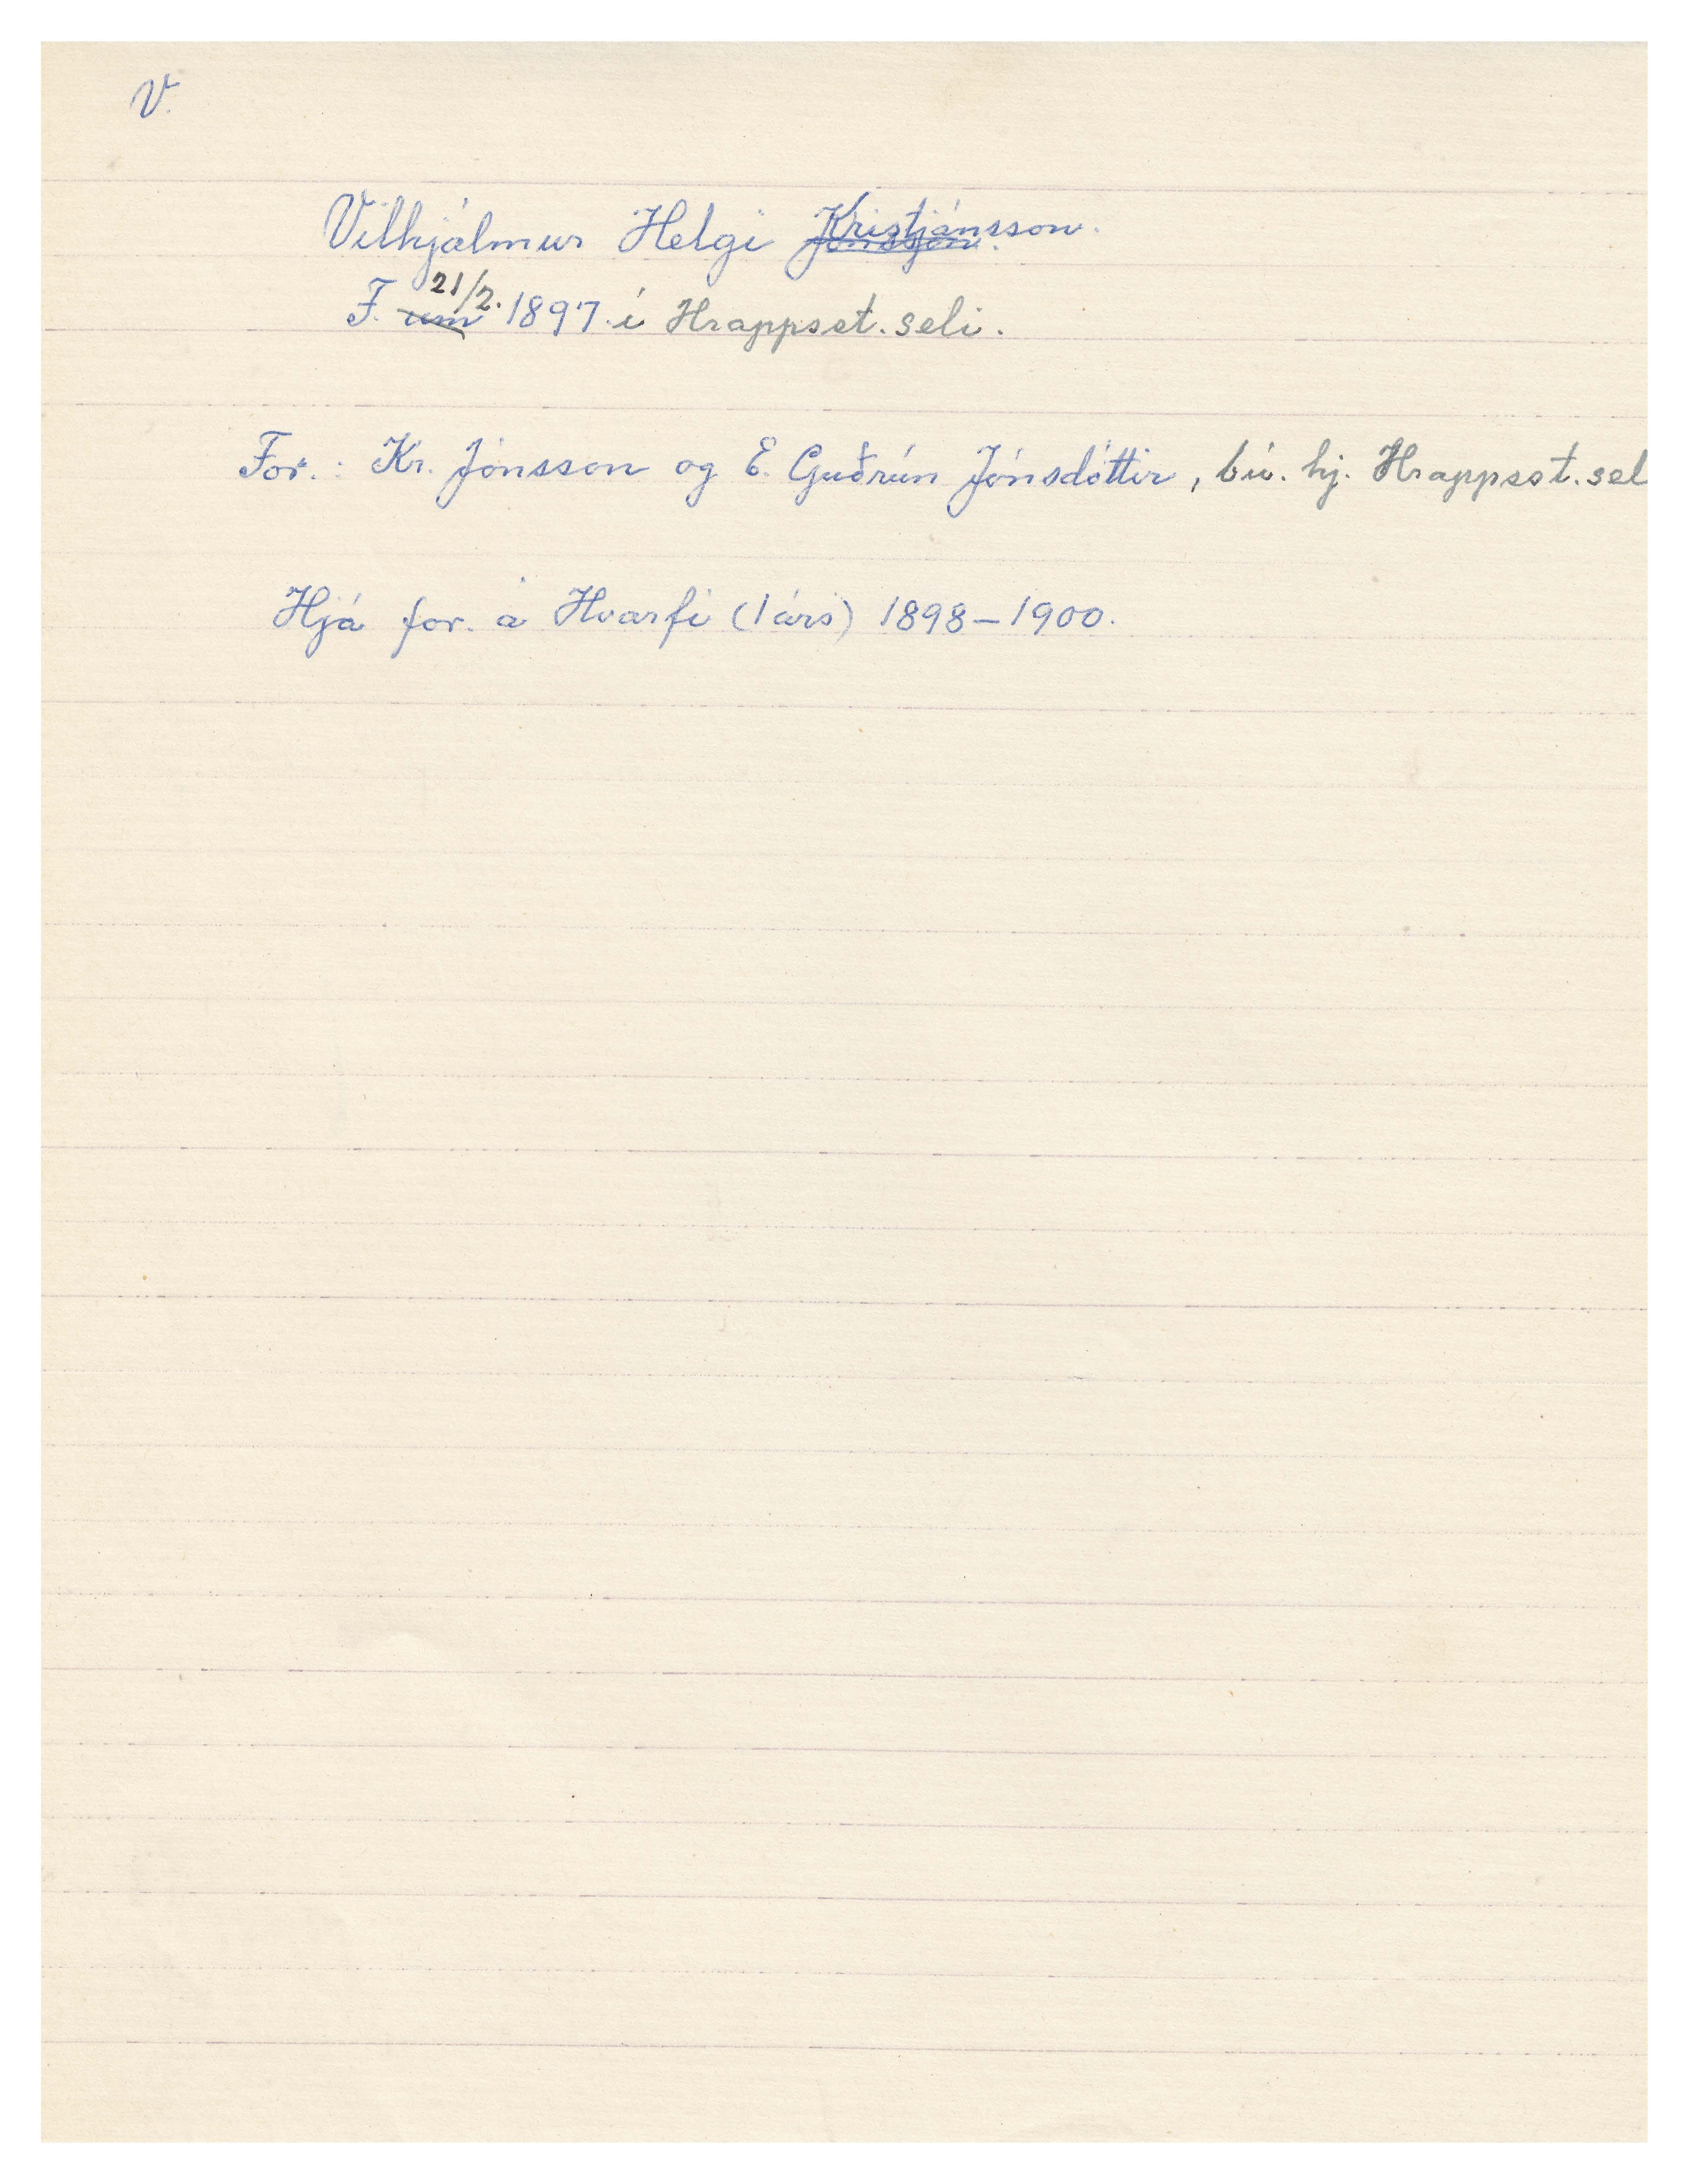 V.
Vilhjálmur Helgi Kristjánsson.
F. 21/2. 1897 í Hrappsst. seli.
For.: Kr. Jónsson og E. Guðrún Jónsdóttir, bú. hj. Hrappsst. sel
Hjá for. á Hvarfi (1 árs) 1898-1900.